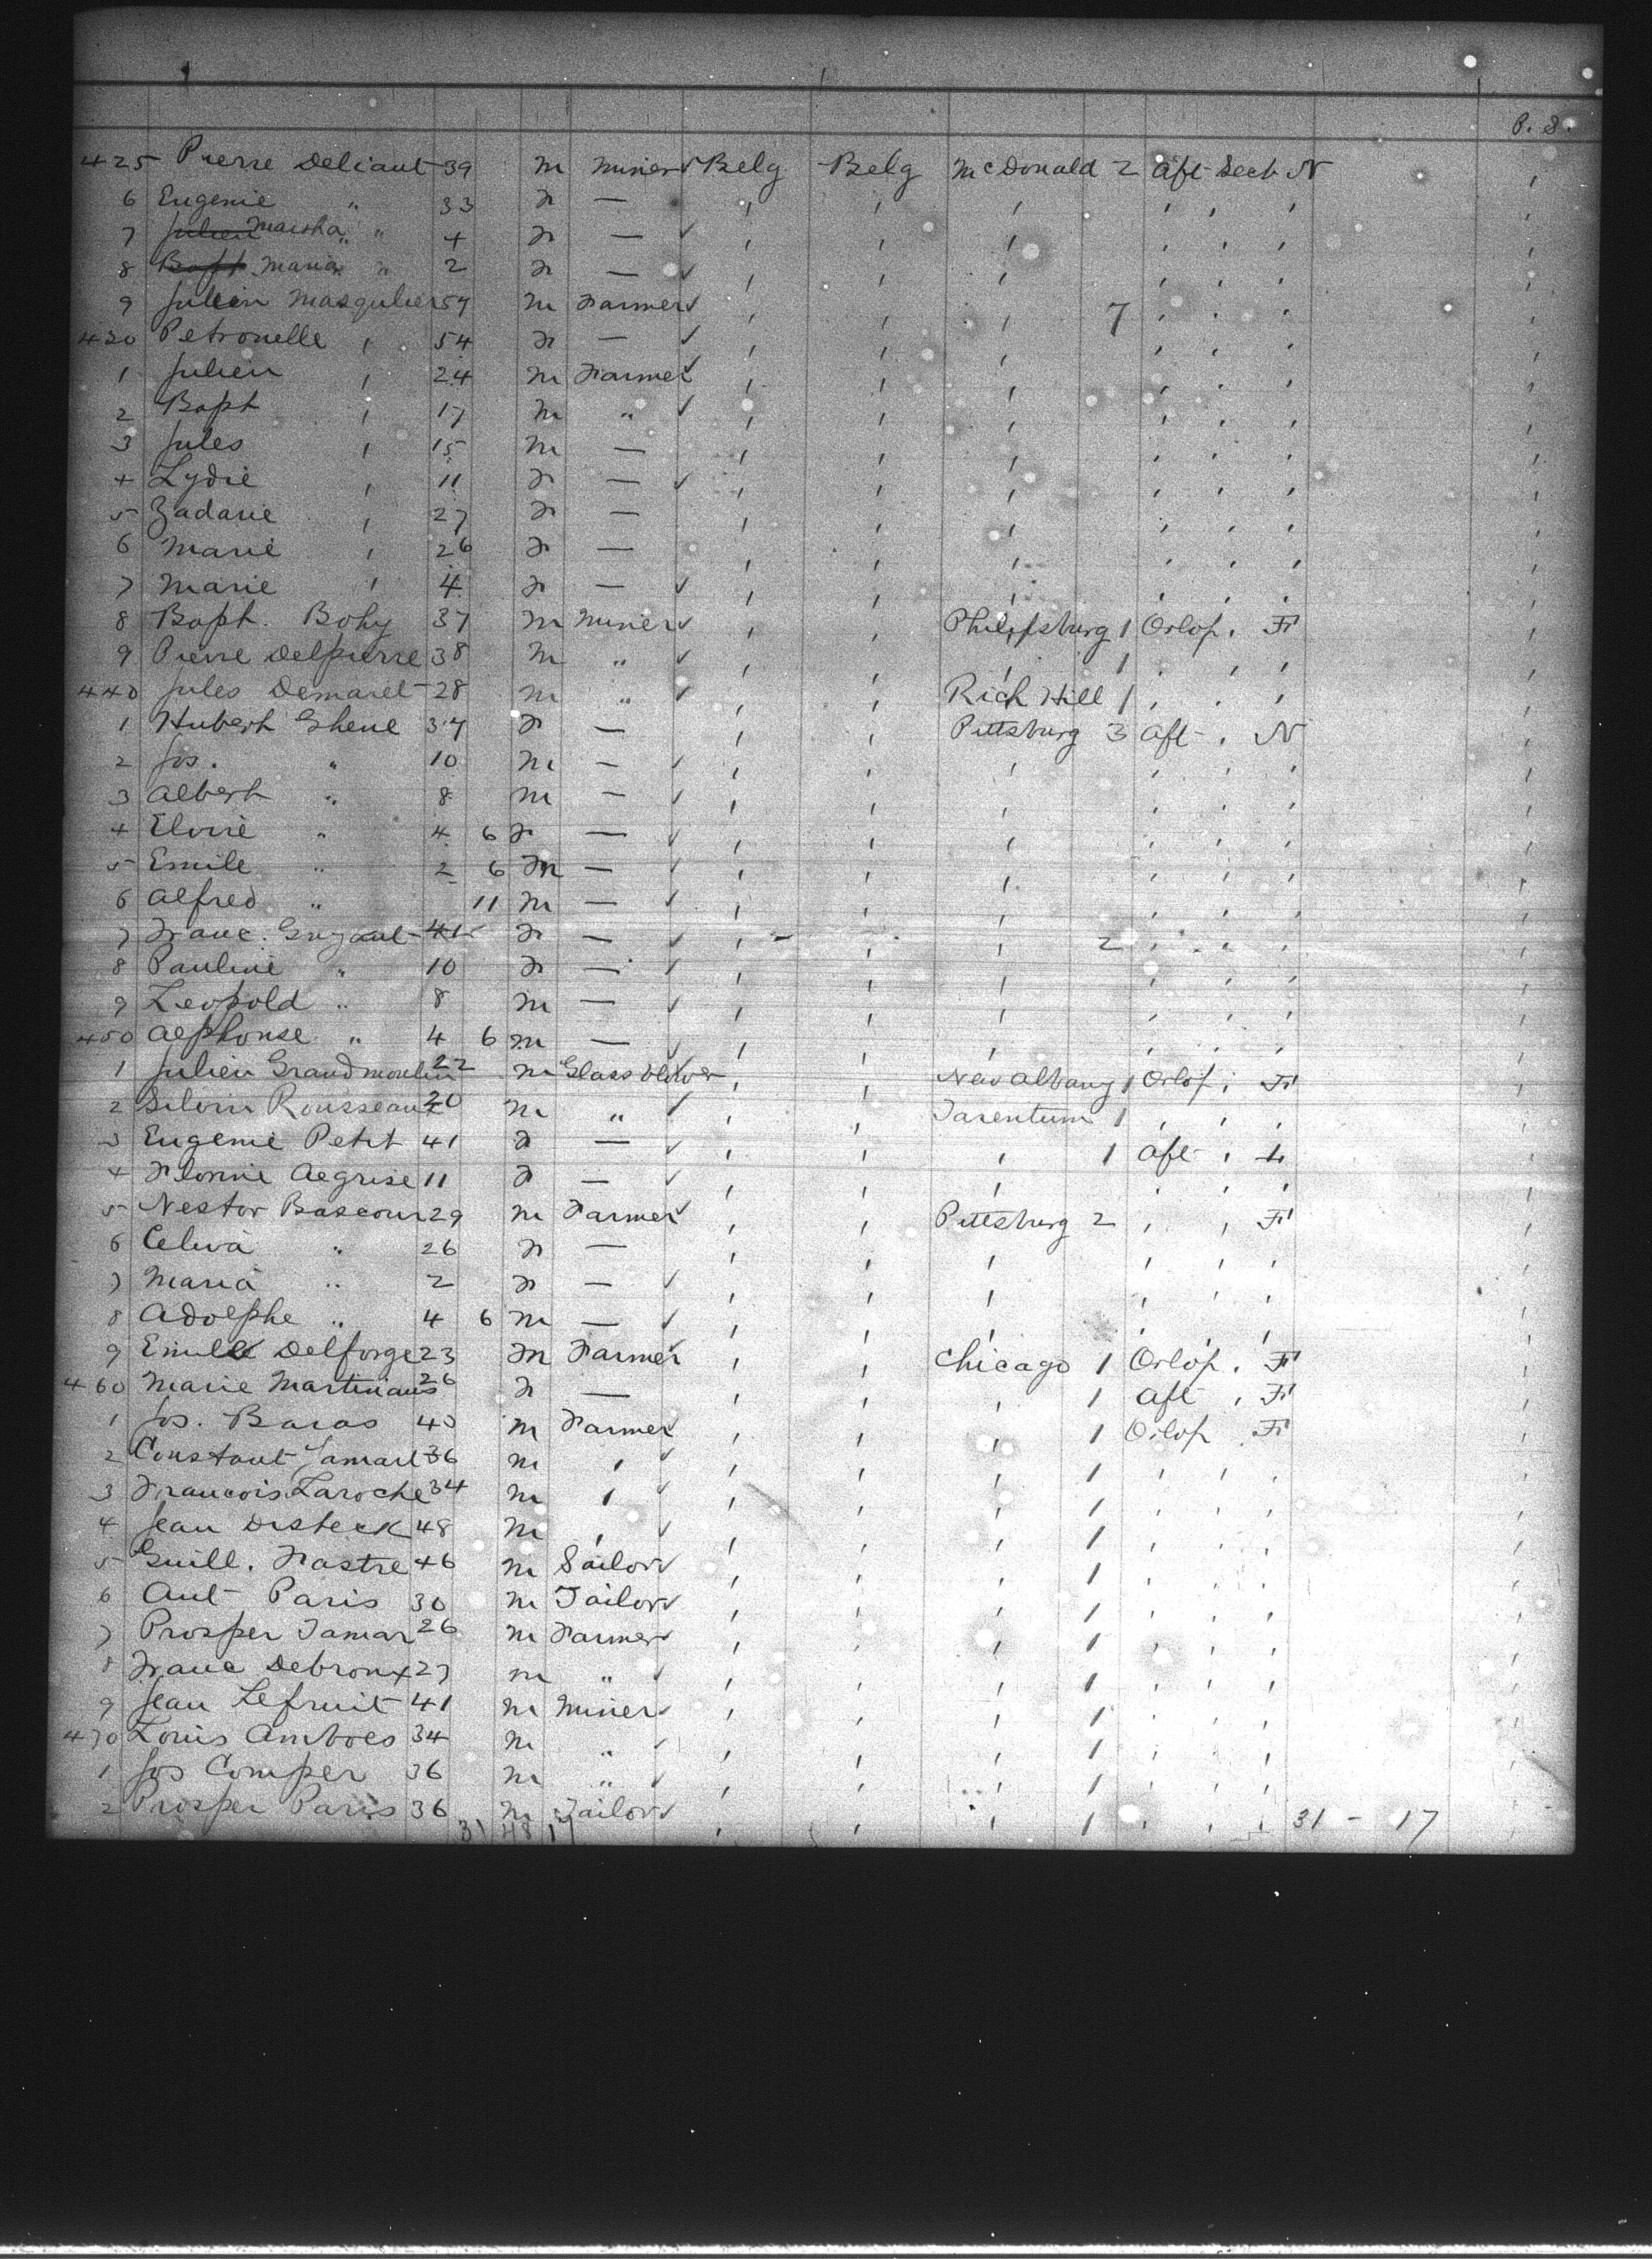 P. 8.
425 Pierre Deliant 39 m miner ✓ Belg Belg McDonald 2 Aft Sect N
6 Eugenie " 33 F — ' ' ' ' ' '
7 Julien Martha " " 4 F — ✓ ' ' ' ' ' '
8 Bapt Maria " " 2 F — ✓ ' ' ' ' ' '
9 Julien Masqulier 54 m Farmer ✓ ' ' ' 7 ' ' '
430 Petronelle ' 54 F — ✓ ' ' ' ' ' '
1 Julien ' 24 m Farmer ✓ ' ' ' ' ' '
2 Bapt ' 17 m " ✓ ' ' ' ' ' '
3 Jules ' 15 m — ' ' ' ' ' '
4 Lydie ' 11 F — ✓ ' ' ' ' ' '
5 Zadarie ' 27 F — ' ' ' ' ' '
6 Marie ' 26 F — ' ' ' ' ' '
7 Marie ' 4 F — ✓ ' ' ' ' ' '
8 Bapt. Bohy 37 m miner ✓ ' ' Philipsburg 1 Orlop ' F
9 Pierre Delpierre 38 m " ✓ ' ' ' 1 ' ' '
440 Jules Demaret 28 m " ✓ ' ' Rich Hill 1 ' ' '
1 Hubert Ghene 34 F — ' ' Pittsburg 3 Aft ' N
2 Jos. " 10 m — ✓ ' ' ' ' ' '
3 Albert " 8 m — ✓ ' ' ' ' ' '
4 Eloise " 4 6 F — ✓ ' ' ' ' ' '
5 Emile " 2 6 m — ✓ ' ' ' ' ' '
6 Alfred " 11 m — ✓ ' ' ' ' ' '
7 Franc. 41 F — ✓ ' ' ' 2 ' ' '
8 Pauline " 10 F — ✓ ' ' ' ' ' '
9 Leopold " 8 m — ✓ ' ' ' ' ' '
450 Alphonse " 4 6 m — ✓ ' ' ' ' ' '
1 Julien Grandmoulin 22 m Glassblower ' ' New Albany 1 Orlop ' F
2 Silvin Rousseaux 20 m " ✓ ' ' Tarentum 1 ' ' '
3 Eugenie Petit 41 F — ✓ ' ' ' 1 Aft '
4 Florine Aegrise 11 F — ✓ ' ' ' ' ' '
5 Nestor Bascour 29 m Farmer ✓ ' ' Pittsburg 2 ' ' F
6 Celina " 26 F — ' ' ' ' ' '
7 Maria " 2 F — ✓ ' ' ' ' ' '
8 Adolphe " 4 6 m — ✓ ' ' ' ' ' '
9 Emile Delforge 23 m Farmer ' ' Chicago 1 Orlop ' F
460 Marie Martinaus 26 F — ' ' ' 1 Aft ' F
1 Jos. Baras 43 m Farmer ✓ ' ' ' 1 Orlop ' F
2 Constant Jamart 36 m ' ✓ ' ' ' 1 ' ' '
3 Francois Laroche 34 m ' ✓ ' ' ' 1 ' ' '
4 Jean Disteck 48 m ' ✓ ' ' ' 1 ' ' '
5 Guill. Fastre 46 m Sailor ✓ ' ' ' 1 ' ' '
6 Ant Paris 30 m Tailor ✓ ' ' ' 1 ' ' '
7 Prosper Jamar 26 m Farmer ✓ ' ' ' 1 ' ' '
8 Franc Debroux 27 m " ✓ ' ' ' 1 ' ' '
9 Jean Lefruit 41 m miner ✓ ' ' ' 1 ' ' '
470 Louis Amboes 34 m " ✓ ' ' ' 1 ' ' '
1 Jos Comper 36 m " ✓ ' ' ' 1 ' ' '
2 Prosper Paris 36 m Tailor ✓ ' ' ' 1 ' ' ' 31 - 17
31 48 17